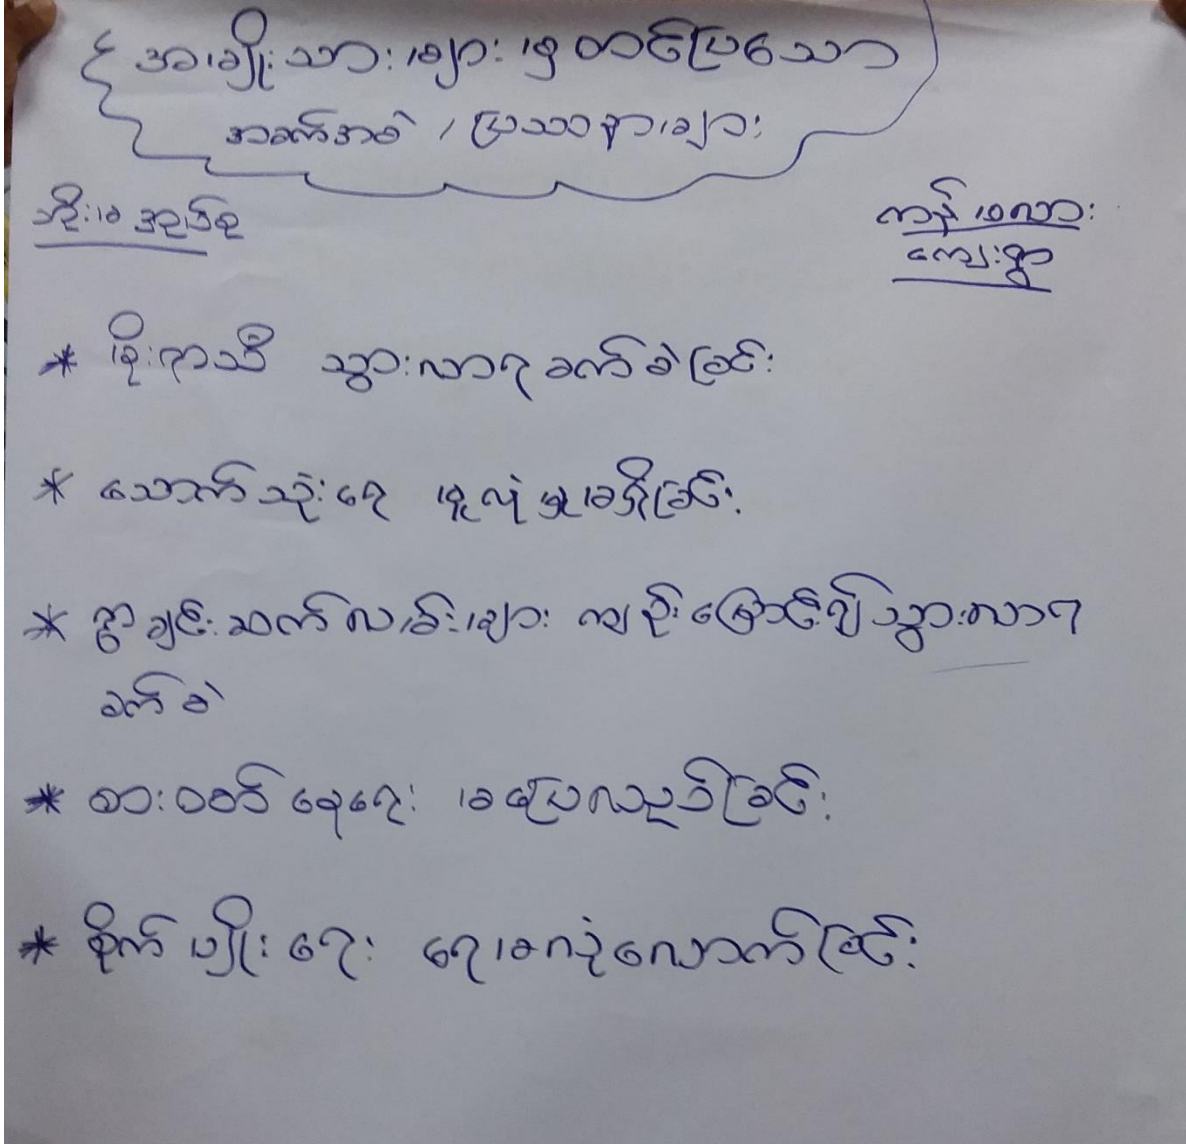 အမျိုးသားများမှ တင်ပြသော
အခက်အခဲ / ပြဿနာများ
ဘိုးမ အုပ်စု
ကန်ဖလား
ကျေးရွာ
* မိုးရာသီ သွားလာရခက်ခဲခြင်း
* သောက်သုံးရေ မူလုံမှုမရှိခြင်း
* ရွာချင်းဆက်လမ်းများ ကျဉ်းမြောင်း၍သွားလာရ
ခက်ခဲ
* စားဝတ်နေရေး မပြေလည်ခြင်း
* စိုက်ပျိုးရေး ရေမလုံလောက်ခြင်း